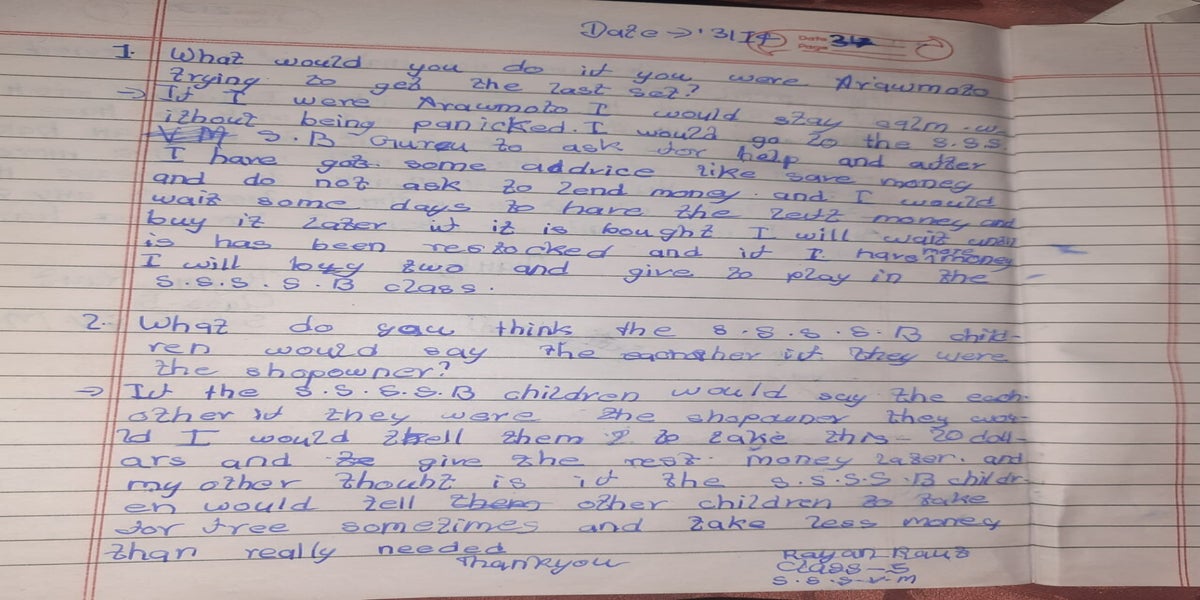 Date → 31
Date
Page
1. What would you do if you were Ariawmoto
trying to get the last set?
→ If I were Arawmoto I would stay calm .w
ithout being panicked. I would go to the S.S.S
S.B Guru to ask for help and after
I have got some addvice like save money
and do not ask to lend money and I would
wait some days to have the left money and
buy it later if it is bought I will wait until
is has been restocked and if I have more money
I will buy two and give to play in the
S.S.S.S.B class.
2. What do you think the S.S.S.S.B child-
ren would say the eachother if they were
the shopowner?
→ If the S.S.S.S.B children would say the each
other if they were the shopowner they wou-
ld I would tell them to take this 20 doll-
ars and give the rest money later. and
my other thought is if the S.S.S.S.B childr-
en would tell other children to take
for free sometimes and take less money
than really needed
Thankyou
Rayan Raut
Class-5
S.S.S-V-M